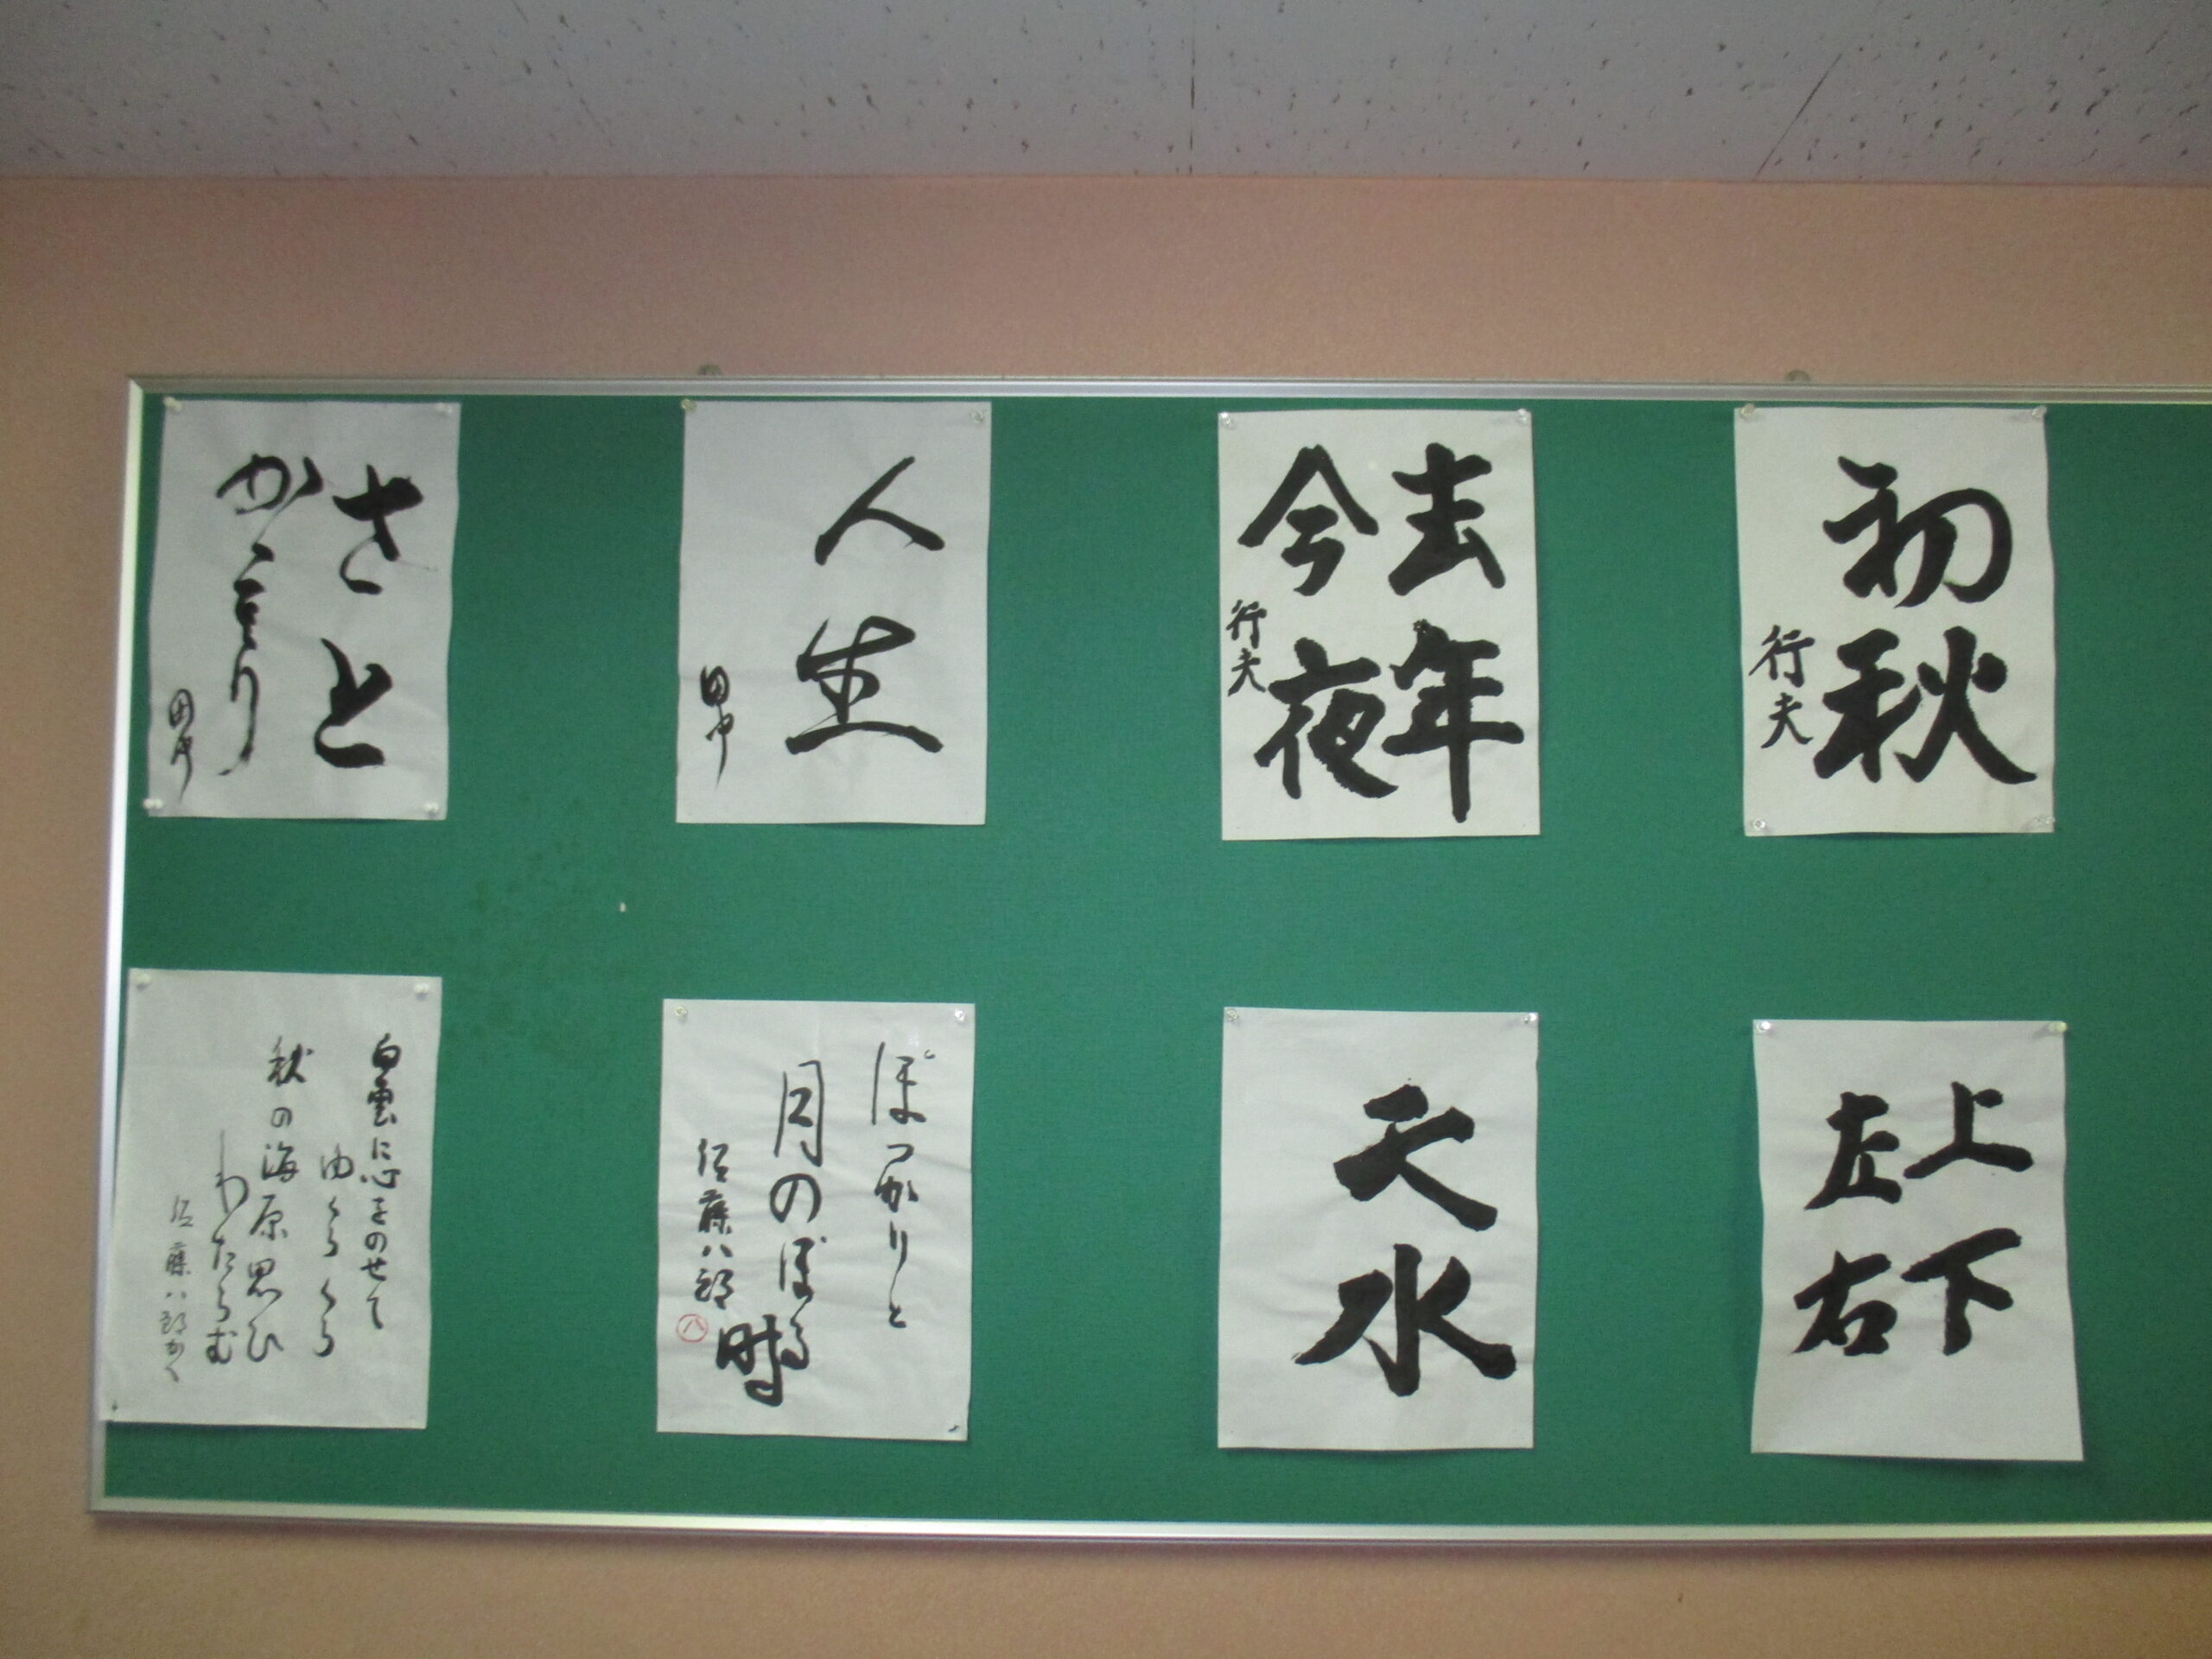 初秋
行夫
去年
今夜
行夫
人生
田中
さと
かゞり
田中
上下
左右
天水
ぽっかりと
月のぼる時
佐藤八郎
八
白雲に心をのせて
ゆくらくら
秋の海原思ひ
わたらむ
佐藤八郎かく